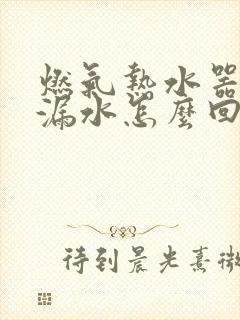 燃氣熱水器
漏水怎麼回
待到晨光熹微